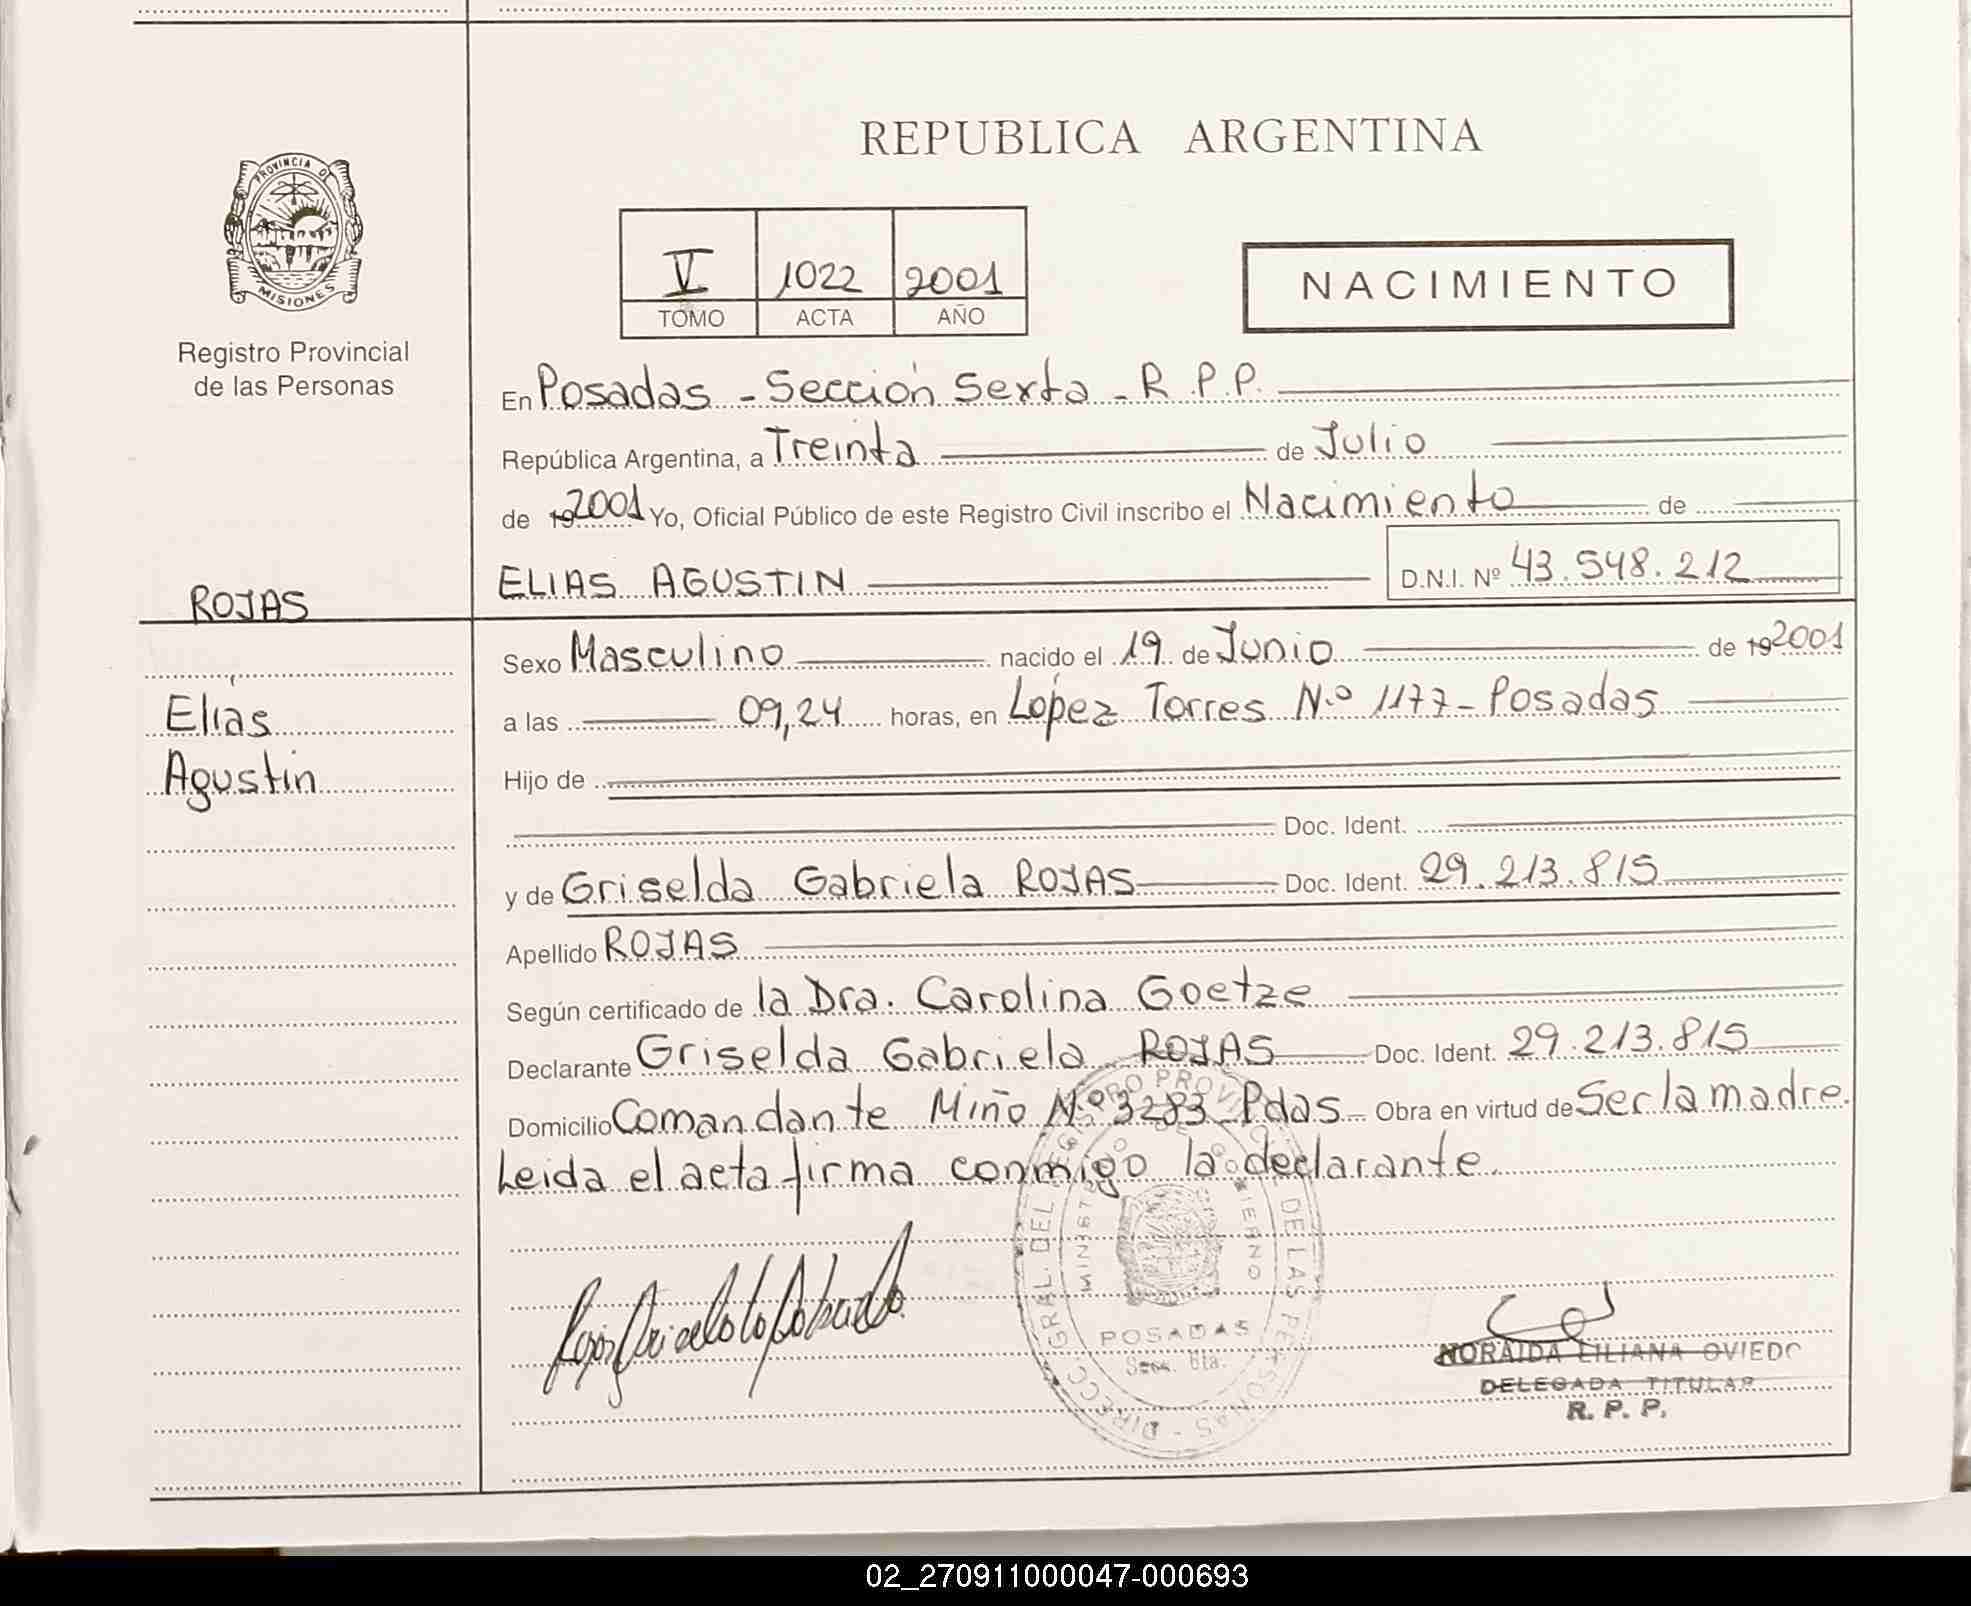 REPUBLICA ARGENTINA
PROVINCIA DE
MISIONES
Registro Provincial
de las Personas
V 1022 2001
TOMO ACTA AÑO
NACIMIENTO
En Posadas - Sección Sexta - R.P.P.
República Argentina, a Treinta de Julio
de 192001 Yo, Oficial Público de este Registro Civil inscribo el Nacimiento de
ELIAS AGUSTIN D.N.I. Nº 43.548.212
ROJAS
Elías
Agustin
Sexo Masculino nacido el 19 de Junio de 192001
a las 09,24 horas, en López Torres N.º 1177 - Posadas
Hijo de
Doc. Ident.
y de Griselda Gabriela ROJAS Doc. Ident. 29.213.815
Apellido ROJAS
Según certificado de la Dra. Carolina Goetze
Declarante Griselda Gabriela ROJAS Doc. Ident. 29.213.815
Domicilio Comandante Miño Nº 3283 - Pdas - Obra en virtud de Ser la madre.
Leida el acta firma conmigo la declarante.
DIRECC. GRAL. DEL REGISTRO PROVINCIAL DE LAS PERSONAS
MINISTERIO DE GOBIERNO
POSADAS
Secc. 6ta.
NORAIDA LILIANA OVIEDO
DELEGADA TITULAR
R. P. P.
02_270911000047-000693